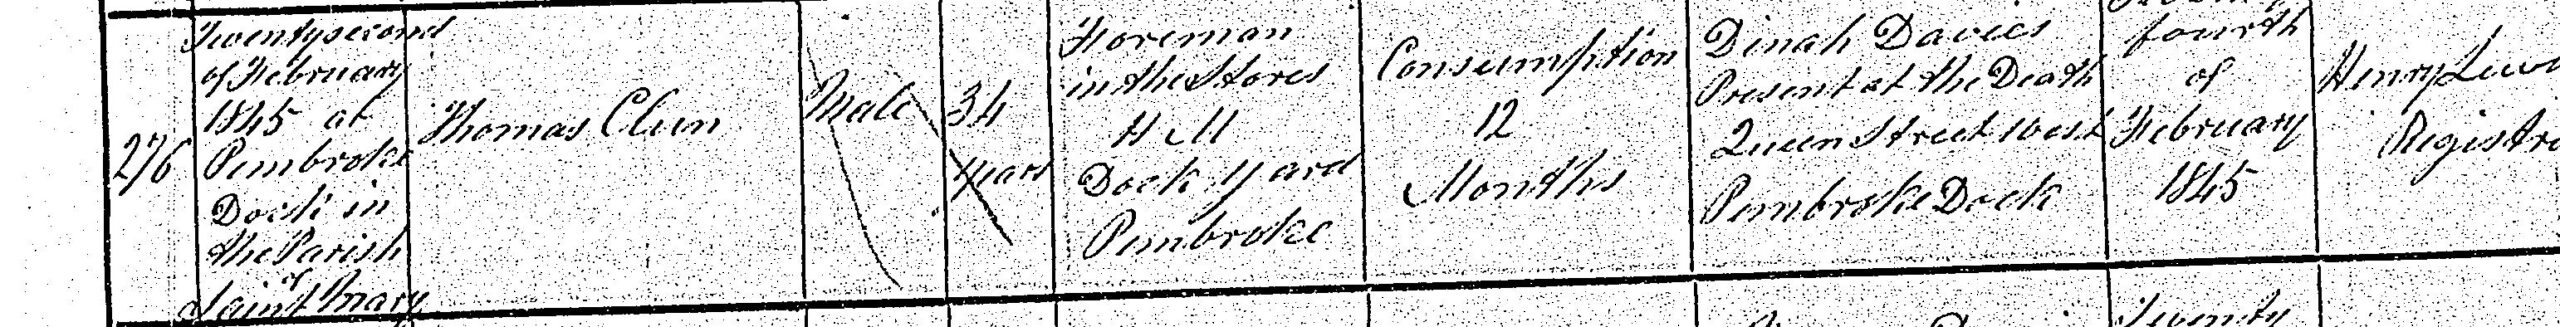 276
Twentysecond
of February
1845 at
Pembroke
Dock in
the Parish
of
Saint Mary
Thomas Clun
Male
34
years
Foreman
in the Stores
H M
Dock Yard
Pembroke
Consumption
12
Months
Dinah Davies
Present at the Death
Queen Street West
Pembroke Dock
fourth
of
February
1845
Henry
Twenty